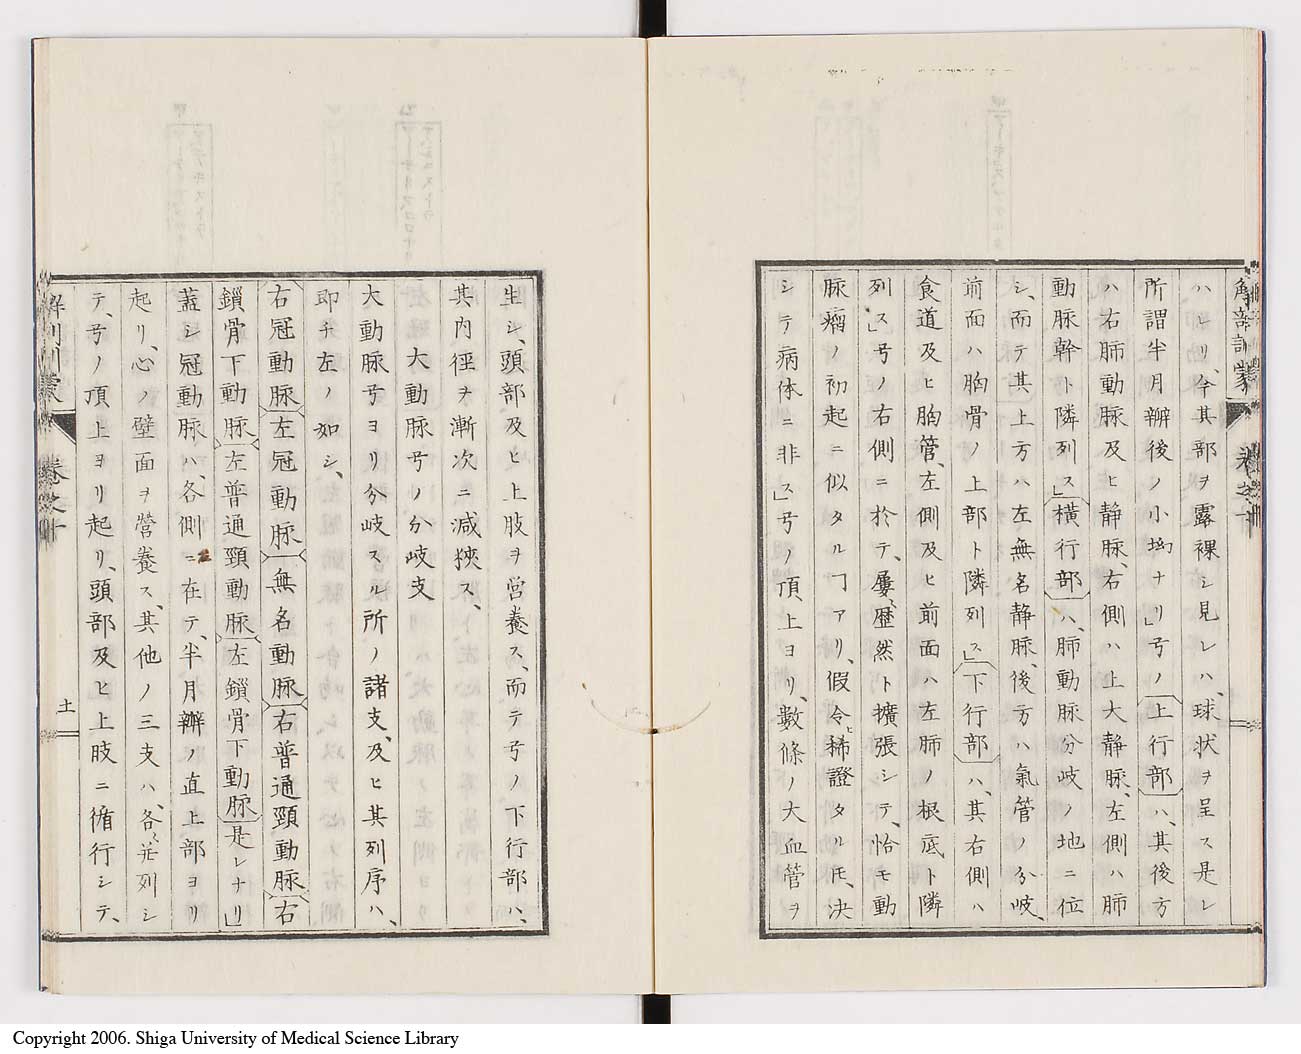 解剖訓蒙 巻之十
ハレリ、今其部ヲ露裸シ見レハ、球状ヲ呈ス是レ
所謂半月瓣後ノ小坳ナリ」弓ノ上行部ハ、其後方
ハ右肺動脉及ヒ静脉、右側ハ上大静脉、左側ハ肺
動脉幹ト隣列ス」横行部ハ、肺動脉分岐ノ地ニ位
シ、而テ其上方ハ左無名静脉、後方ハ氣管ノ分岐、
前面ハ胸骨ノ上部ト隣列ス」下行部ハ、其右側ハ
食道及ヒ胸管、左側及ヒ前面ハ左肺ノ根底ト隣
列ス」弓ノ右側ニ於テ、屢歴然ト擴張シテ、恰モ動
脉瘤ノ初起ニ似タルヿアリ、假令ヒ稀證タルモ、决
シテ病体ニ非ス」弓ノ頂上ヨリ、數條ノ大血管ヲ
生シ、頭部及ヒ上肢ヲ営養ス、而テ弓ノ下行部ハ、
其内徑ヲ漸次ニ減狹ス、
大動脉弓ノ分岐支
大動脉弓ヨリ分岐スル所ノ諸支、及ヒ其列序ハ、
即チ左ノ如シ、
右冠動脉 左冠動脉 無名動脉 右普通頸動脉 右
鎖骨下動脉 左普通頸動脉 左鎖骨下動脉 是レナリ」
蓋シ冠動脉ハ、各側ニ在テ、半月瓣ノ直上部ヨリ
起リ、心ノ壁面ヲ營養ス、其他ノ三支ハ、各〻並列シ
テ、弓ノ頂上ヨリ起リ、頭部及ヒ上肢ニ循行シテ、
解剖訓蒙 巻之十
十一
Copyright 2006. Shiga University of Medical Science Library